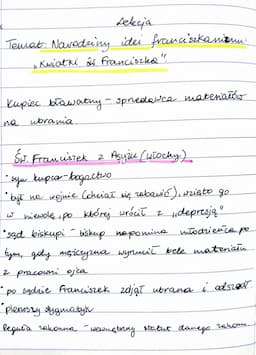 Lekcja
Temat: Narodziny idei franciszkanizmu.
"Kwiatki św. Franciszka"
Kupiec bławatny - sprzedawca materiałów
na ubrania.
Św. Franciszek z Asyżu (Włochy)
• syn kupca - bogactwo
• był na wojnie (chciał się zabawić), wzięto go
w niewolę, po której wrócił z "depresją"
• sąd biskupi - biskup napomina młodzieńca po
tym, gdy mężczyzna wyrzucił bele materiału
z pracowni ojca
• po sądzie Franciszek zdjął ubrania i odszedł
• pierwszy stygmatyk
Reguła zakonna - wewnętrzny statut danego zakonu